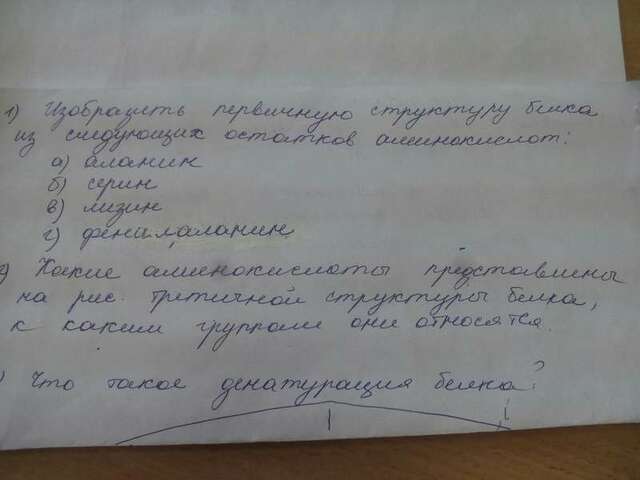 1) Изобразить первичную структуру белка
из следующих остатков аминокислот:
а) аланин
б) серин
в) лизин
г) фенилаланин
2) Какие аминокислоты представлены
на рис. третичной структуры белка,
к каким группам они относятся.
) Что такое денатурация белка?